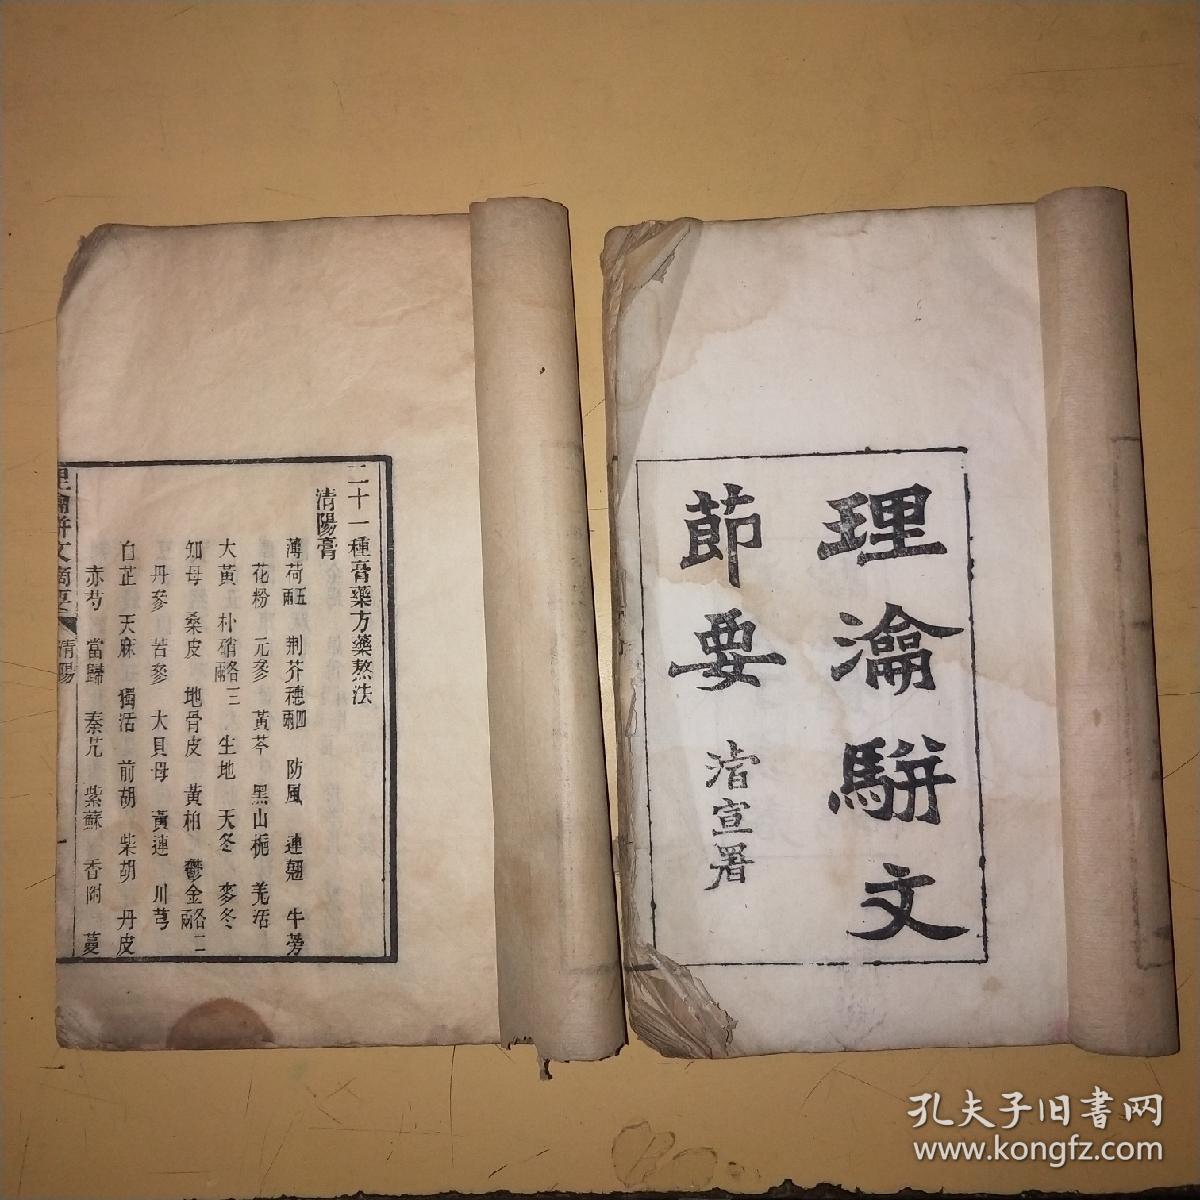 理瀹駢文
節要
湝宣署
二十一種膏藥方藥熬法
清陽膏
薄荷五兩 荆芥穗四兩 防風 連翹 牛蒡
花粉 元參 黃芩 黑山梔 羌活
大黃 朴硝各三兩 生地 天冬 麥冬
知母 桑皮 地骨皮 黃柏 鬱金各二兩
丹參 苦參 大貝母 黃連 川芎
白芷 天麻 獨活 前胡 柴胡 丹皮
赤芍 當歸 秦艽 紫蘇 香附 蔓
理瀹駢文摘要 清陽 一
孔夫子旧书网
www.kongfz.com